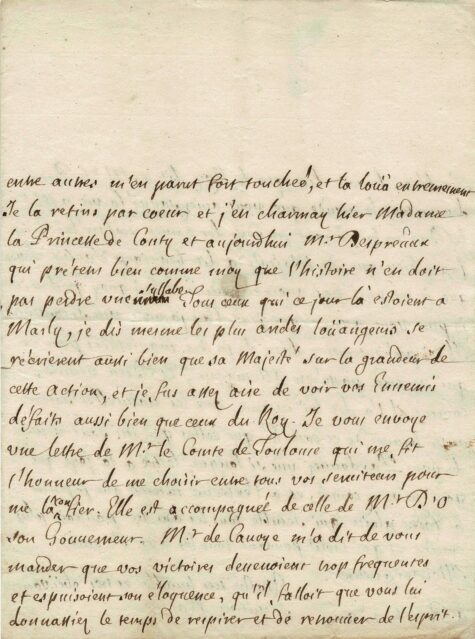 entre autres m'en parut fort toucheé, et la loüa extremement
Je la retins par coeur et j'en charmay hier Madame
la Princesse de Conty et aujourdhui Mr. Despreaux
qui prétend bien comme moy que l'histoire n'en doit
pas perdre une syllabe Tous ceux qui ce jour là estoient a
Marly, je dis mesme les plus arides loüangeurs se
récrierent aussi bien que sa Majesté sur la grandeur de
cette action, et je fus assez aise de voir vos Ennemis
défaits aussi bien que ceux du Roy. Je vous envoye
une lettre de Mr. le Comte de Toulouse qui me fit
l'honneur de me choisir entre tous vos serviteurs pour
me la confier. Elle est accompagnée de celle de Mr. D'O
son Gouverneur. Mr. de Cavoye m'a dit de vous
mander que vos victoires devenoient trop frequentes
et espuisoient son éloquence, qu'il falloit que vous lui
donnassiez le temps de respirer et de renouer de l'esprit.